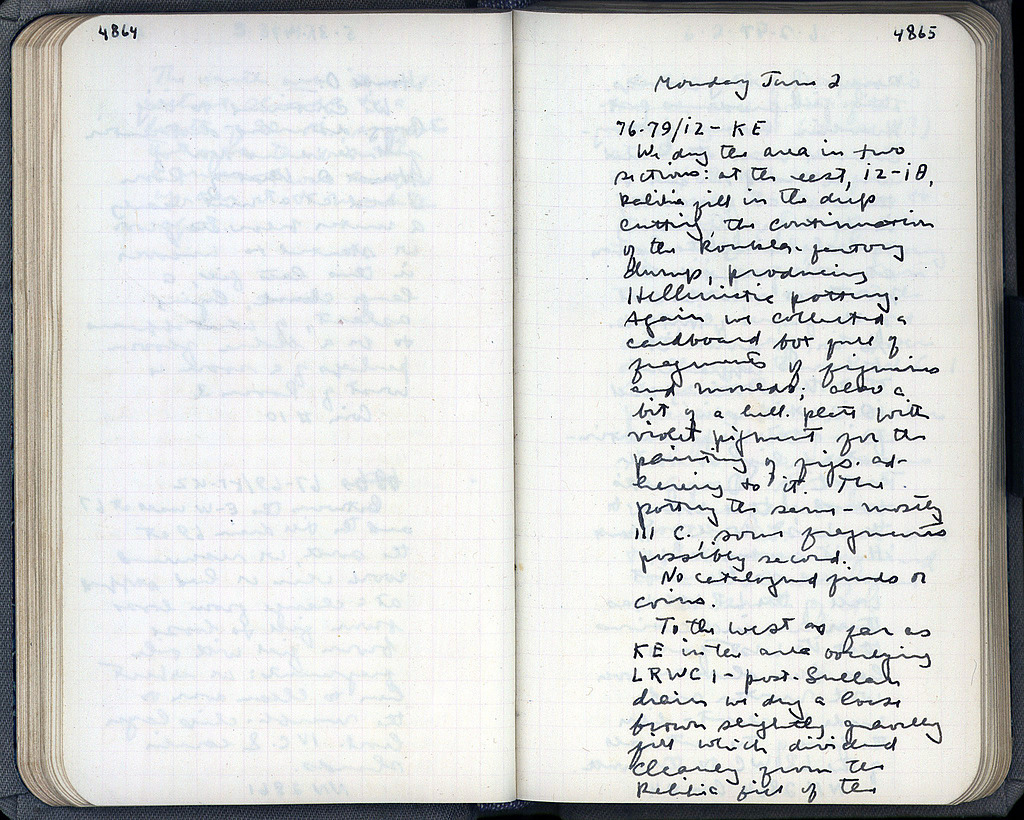 4864
4865
Monday June 2
76-79/12-KE
We dug the area in two
sections: at the east, 12-18,
kalitia fill in the deep
cutting, the continuation
of the Koukla-factory
dump, producing
Hellenistic pottery.
Again we collected a
cardboard box full of
fragments of figurines
and moulds; also a
bit of a hell. plate with
violet pigment for the
painting of figs. ad-
hering to it. The
pottery the same - mostly
III C., some fragments
possibly second.
No catalogued finds or
coins.
To the west as far as
KE in the area overlying
LRWC 1 - post-Sullan
drain we dug a loose
brown slightly gravelly
fill which divided
cleanly from the
kalitia fill of the